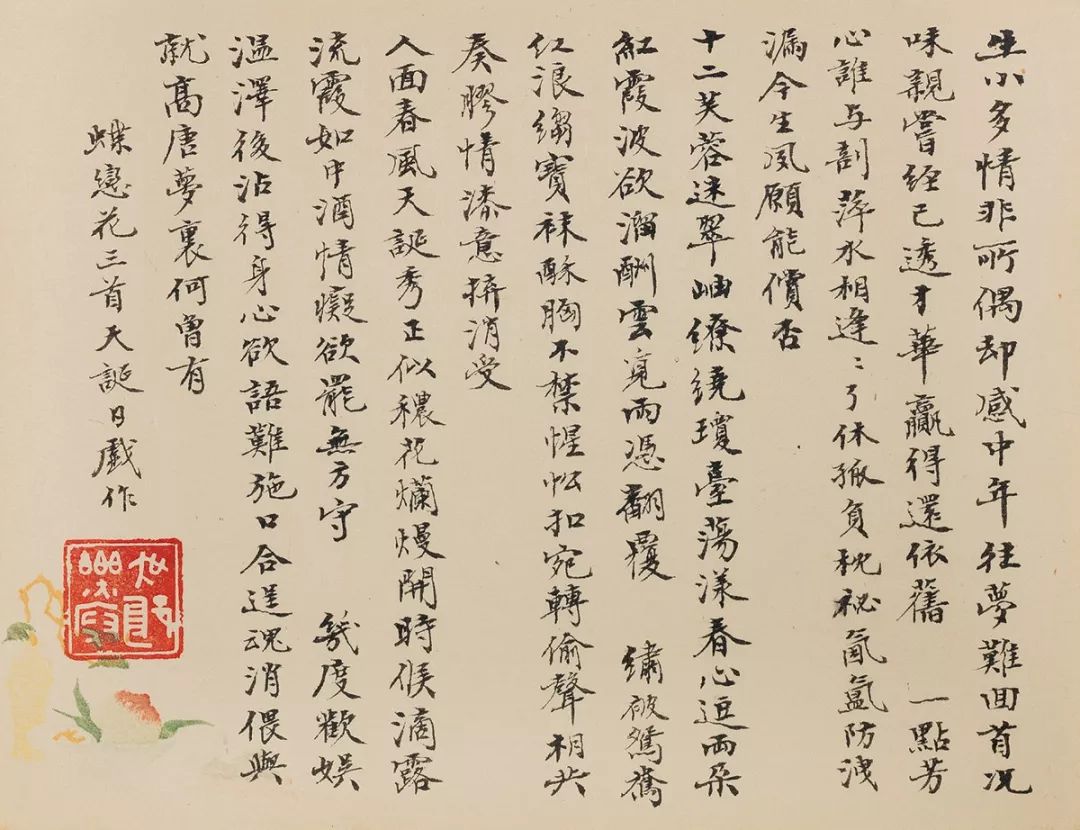 生小多情非所偶却感中年往夢難回首况
味親嘗經已透才華贏得還依舊　一點芳
心誰与剖萍水相逢〻了休孤負秘秘氤氳防洩
漏今生夙願能償否
十二芙蓉迷翠岫繚繞瓊臺蕩漾春心逗兩朵
紅霞波欲溜酬雲寬雨憑翻覆　繡被鴛鴦
紅浪縐寶襪酥胸不禁惺忪扣宛轉偷聲相共
奏膠情漆意擠消受
人面春風天誕秀正似穠花爛熳開時候滴露
流霞如中酒情癡欲罷無方守　幾度歡娛
溫澤後沾得身心欲語難施口合逞魂消偎與
就高唐夢裏何曾有
蝶戀花三首天誕日戲作